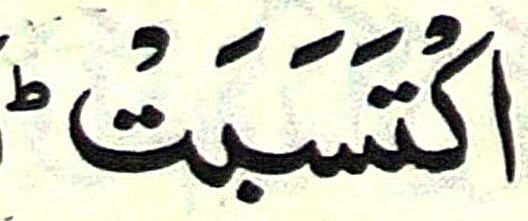 اكْتَسَبَتْ ؕ